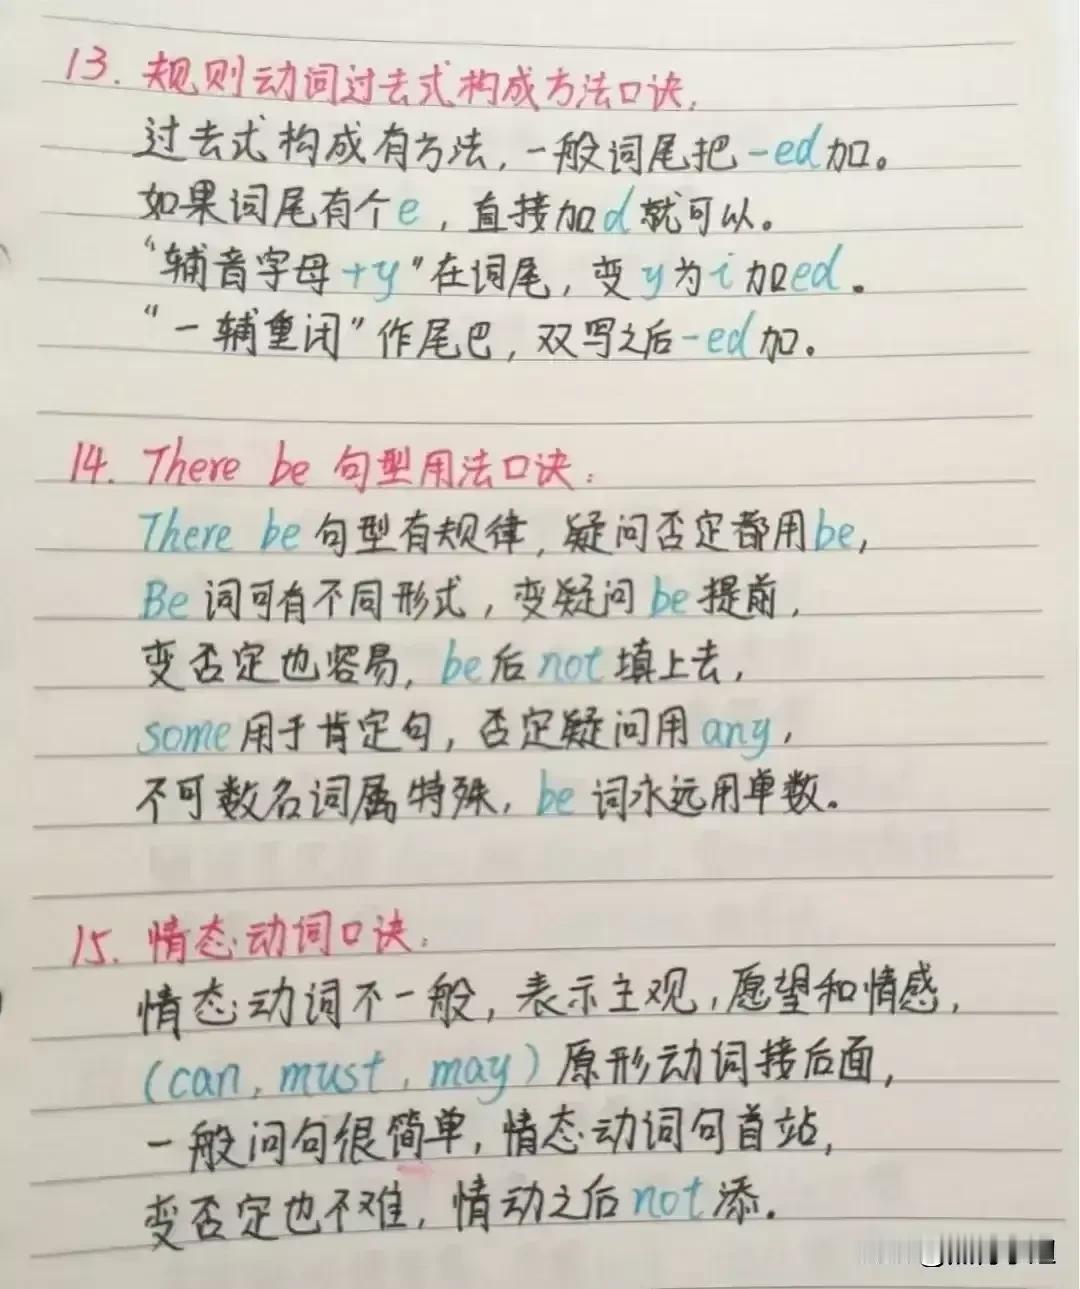 13. 规则动词过去式构成方法口诀.
过去式构成有方法, 一般词尾把-ed加。
如果词尾有个e, 直接加d就可以。
“辅音字母+y”在词尾, 变y为i加ed。
“一辅重闭”作尾巴, 双写之后-ed加。
14. There be 句型用法口诀:
There be 句型有规律, 疑问否定都用be,
Be 词可有不同形式, 变疑问 be 提前,
变否定也容易, be后not填上去,
some用于肯定句, 否定疑问用any,
不可数名词属特殊, be 词永远用单数。
15. 情态动词口诀:
情态动词不一般, 表示主观, 愿望和情感,
(can, must, may) 原形动词接后面,
一般问句很简单, 情态动词句首站,
变否定也不难, 情动之后not添.